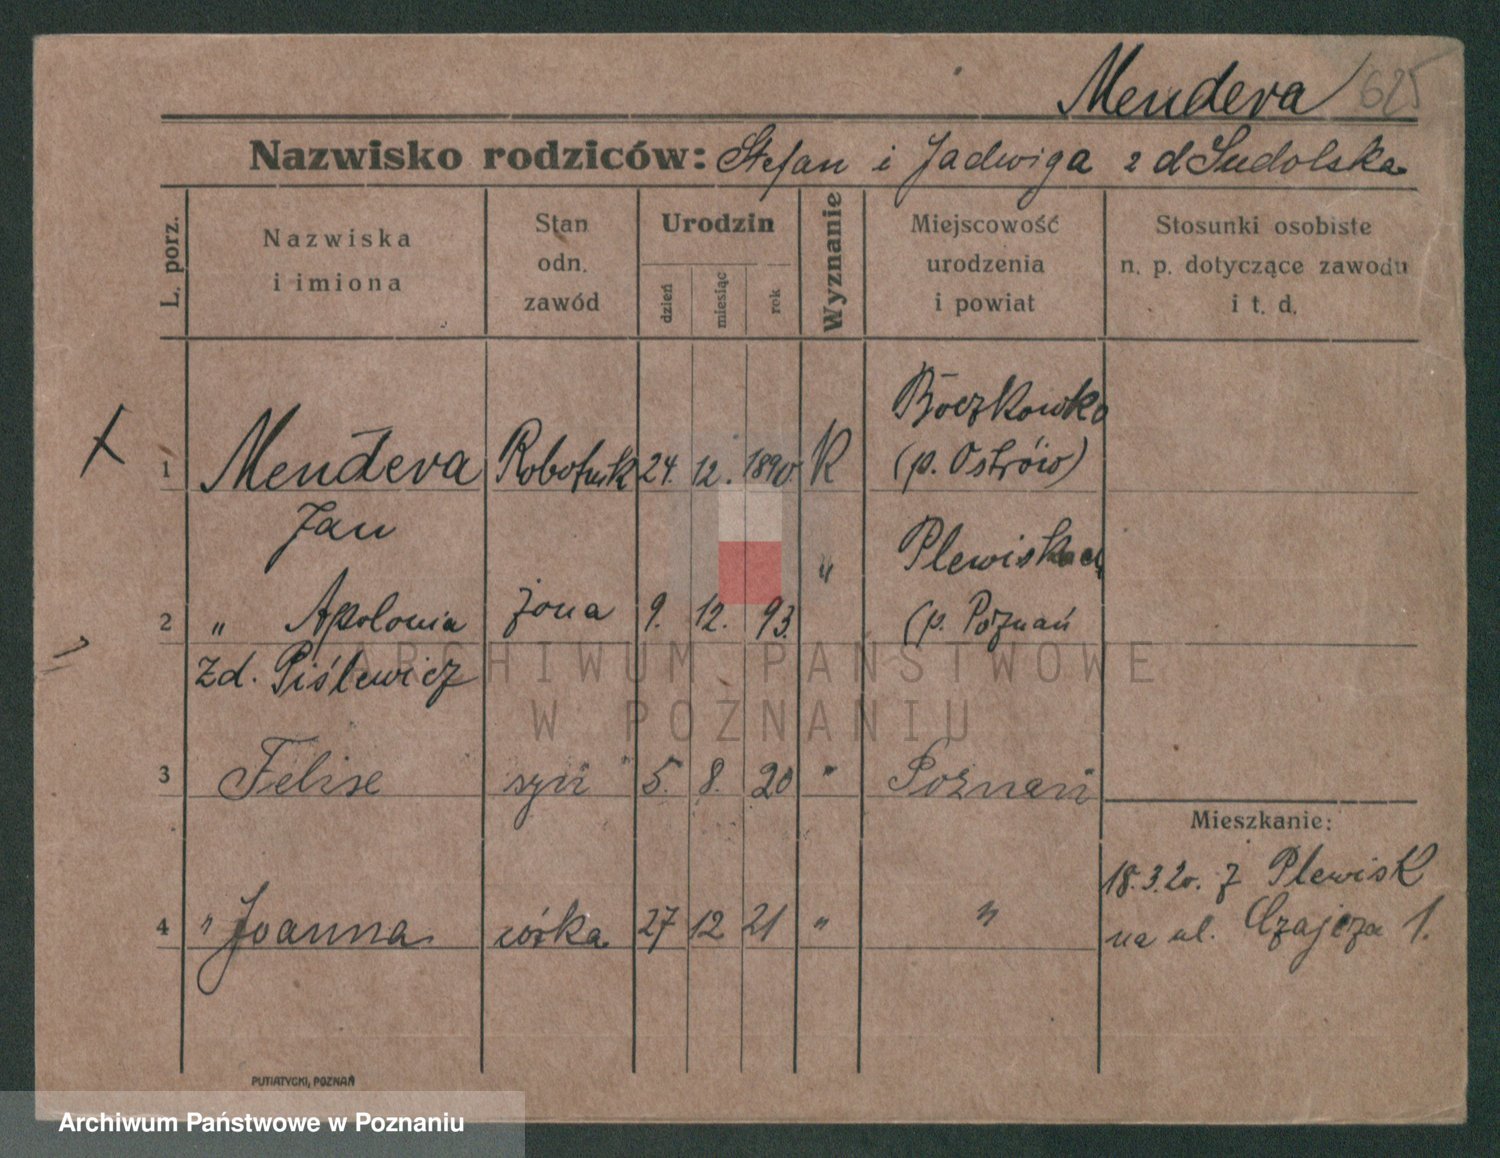 Mendera 625
Nazwisko rodziców: Stefan i Jadwiga z d Sudolska
L. porz.
Nazwiska
i imiona
Stan
odn.
zawód
Urodzin
dzień
miesiąc
rok
Wyznanie
Miejscowość
urodzenia
i powiat
Stosunki osobiste
n. p. dotyczące zawodu
i t. d.
Boczkowko
1 Mendera Robotnik 24. 12. 1890. K (p. Ostrów)
Jan
" Plewiskach
2 " Apolonia żona 9. 12. 93. (p. Poznań
zd. Piślewicz
3 Felixe syn " 5. 8. 20 " Poznań
Mieszkanie:
18.3.20. z Plewisk
4 " Joanna córka 27 12 21 " "
na ul. Czajcza 1.
PUTIATYCKI, POZNAŃ
ARCHIWUM PAŃSTWOWE
W POZNANIU
Archiwum Państwowe w Poznaniu